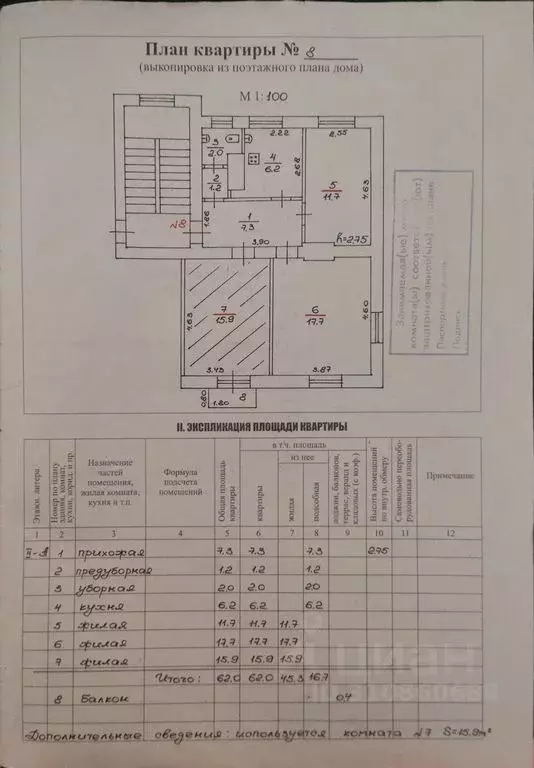 План квартиры № 8
(выкопировка из поэтажного плана дома)
М 1:100
3
2.0
2.22
2.55
4
6.2
2.68
5
11.7
4.63
2
1.2
1.86
1
7.3
№8
h=2.75
3.90
7
15.9
4.63
6
17.7
4.60
3.43
3.87
0.80
1.80
8
Занимаемая(ые)
комната(ы) соответ
Подпись
II. ЭКСПЛИКАЦИЯ ПЛОЩАДИ КВАРТИРЫ
Этажн. литера
Номер по плану здания, комнат, кухни, корид. и пр.
Назначение частей помещения, жилая комната, кухня и т.п.
Формула подсчета помещений
Общая площадь квартиры
в т.ч. площадь
квартиры
из нее
жилая
подсобная
лоджии, балконов, террас, веранд и кладовых (с коэф.)
Высота помещений по внутр. обмеру
Самовольно переоборудованная площадь
Примечание
1 2 3 4 5 6 7 8 9 10 11 12
II-А 1 прихожая 7.3 7.3 7.3 2.75
2 предуборная 1.2 1.2 1.2
3 уборная 2.0 2.0 2.0
4 кухня 6.2 6.2 6.2
5 жилая 11.7 11.7 11.7
6 жилая 17.7 17.7 17.7
7 жилая 15.9 15.9 15.9
Итого: 62.0 62.0 45.3 16.7
8 Балкон 0.4
Дополнительные сведения: используется комната №7 S=15.9м²